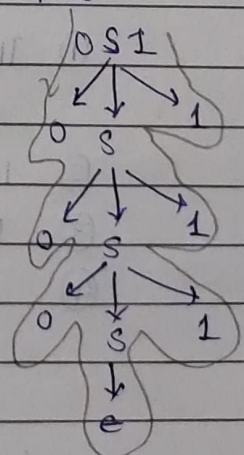 0S1
0 S 1
0 S 1
0 S 1
e